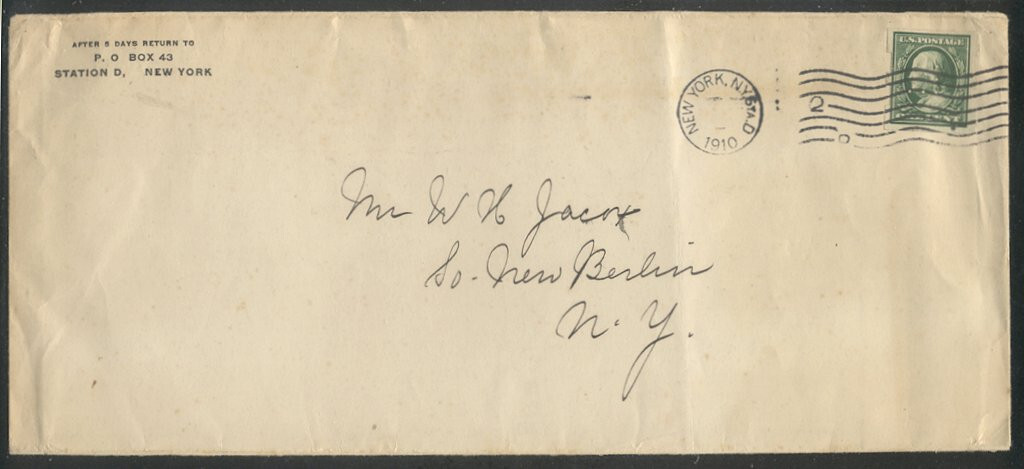 AFTER 5 DAYS RETURN TO
P. O BOX 43
STATION D, NEW YORK
NEW YORK, N.Y. STA. D
1910
2
U.S. POSTAGE
Mr W H Jacox
So. New Berlin
N. Y.